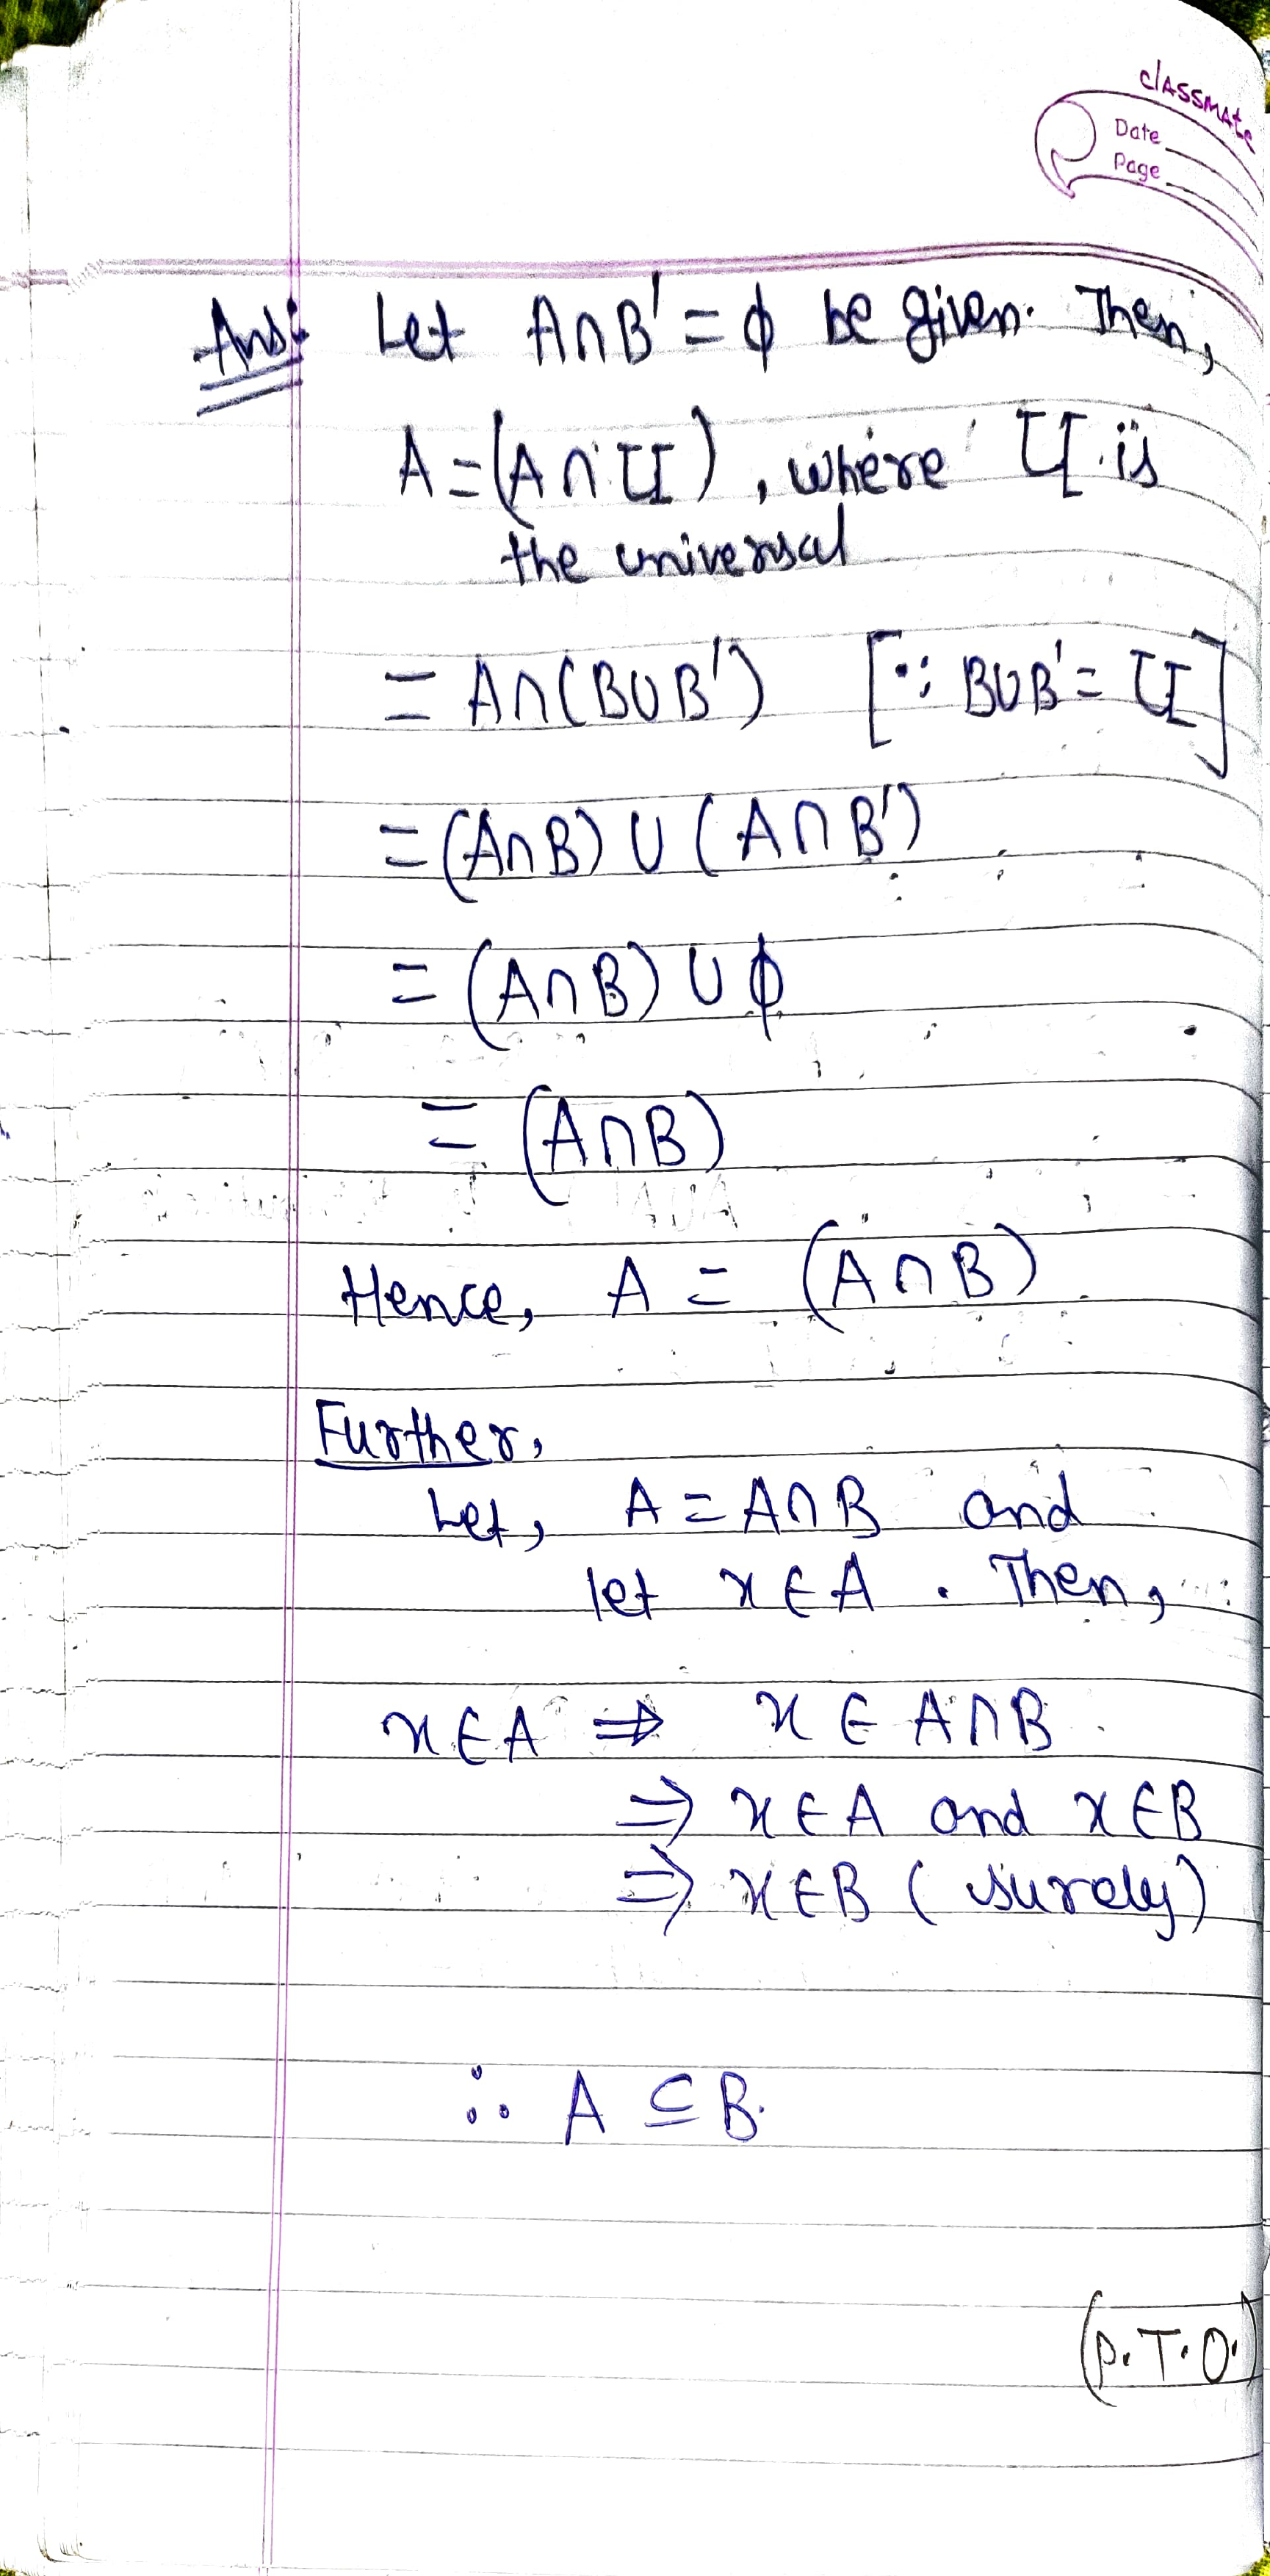 classmate
Date
Page
Ans: Let A∩B' = ϕ be given. Then,
A = (A∩U), where U is
the universal
= A∩(B∪B') [∵ B∪B' = U]
= (A∩B) ∪ (A∩B')
= (A∩B) ∪ ϕ
= (A∩B)
Hence, A = (A∩B)
Further,
Let, A = A∩B and
let x∈A. Then,
x∈A ⇒ x ∈ A∩B
⇒ x∈A and x∈B
⇒ x∈B (surely)
∴ A ⊆ B.
(P.T.O.)